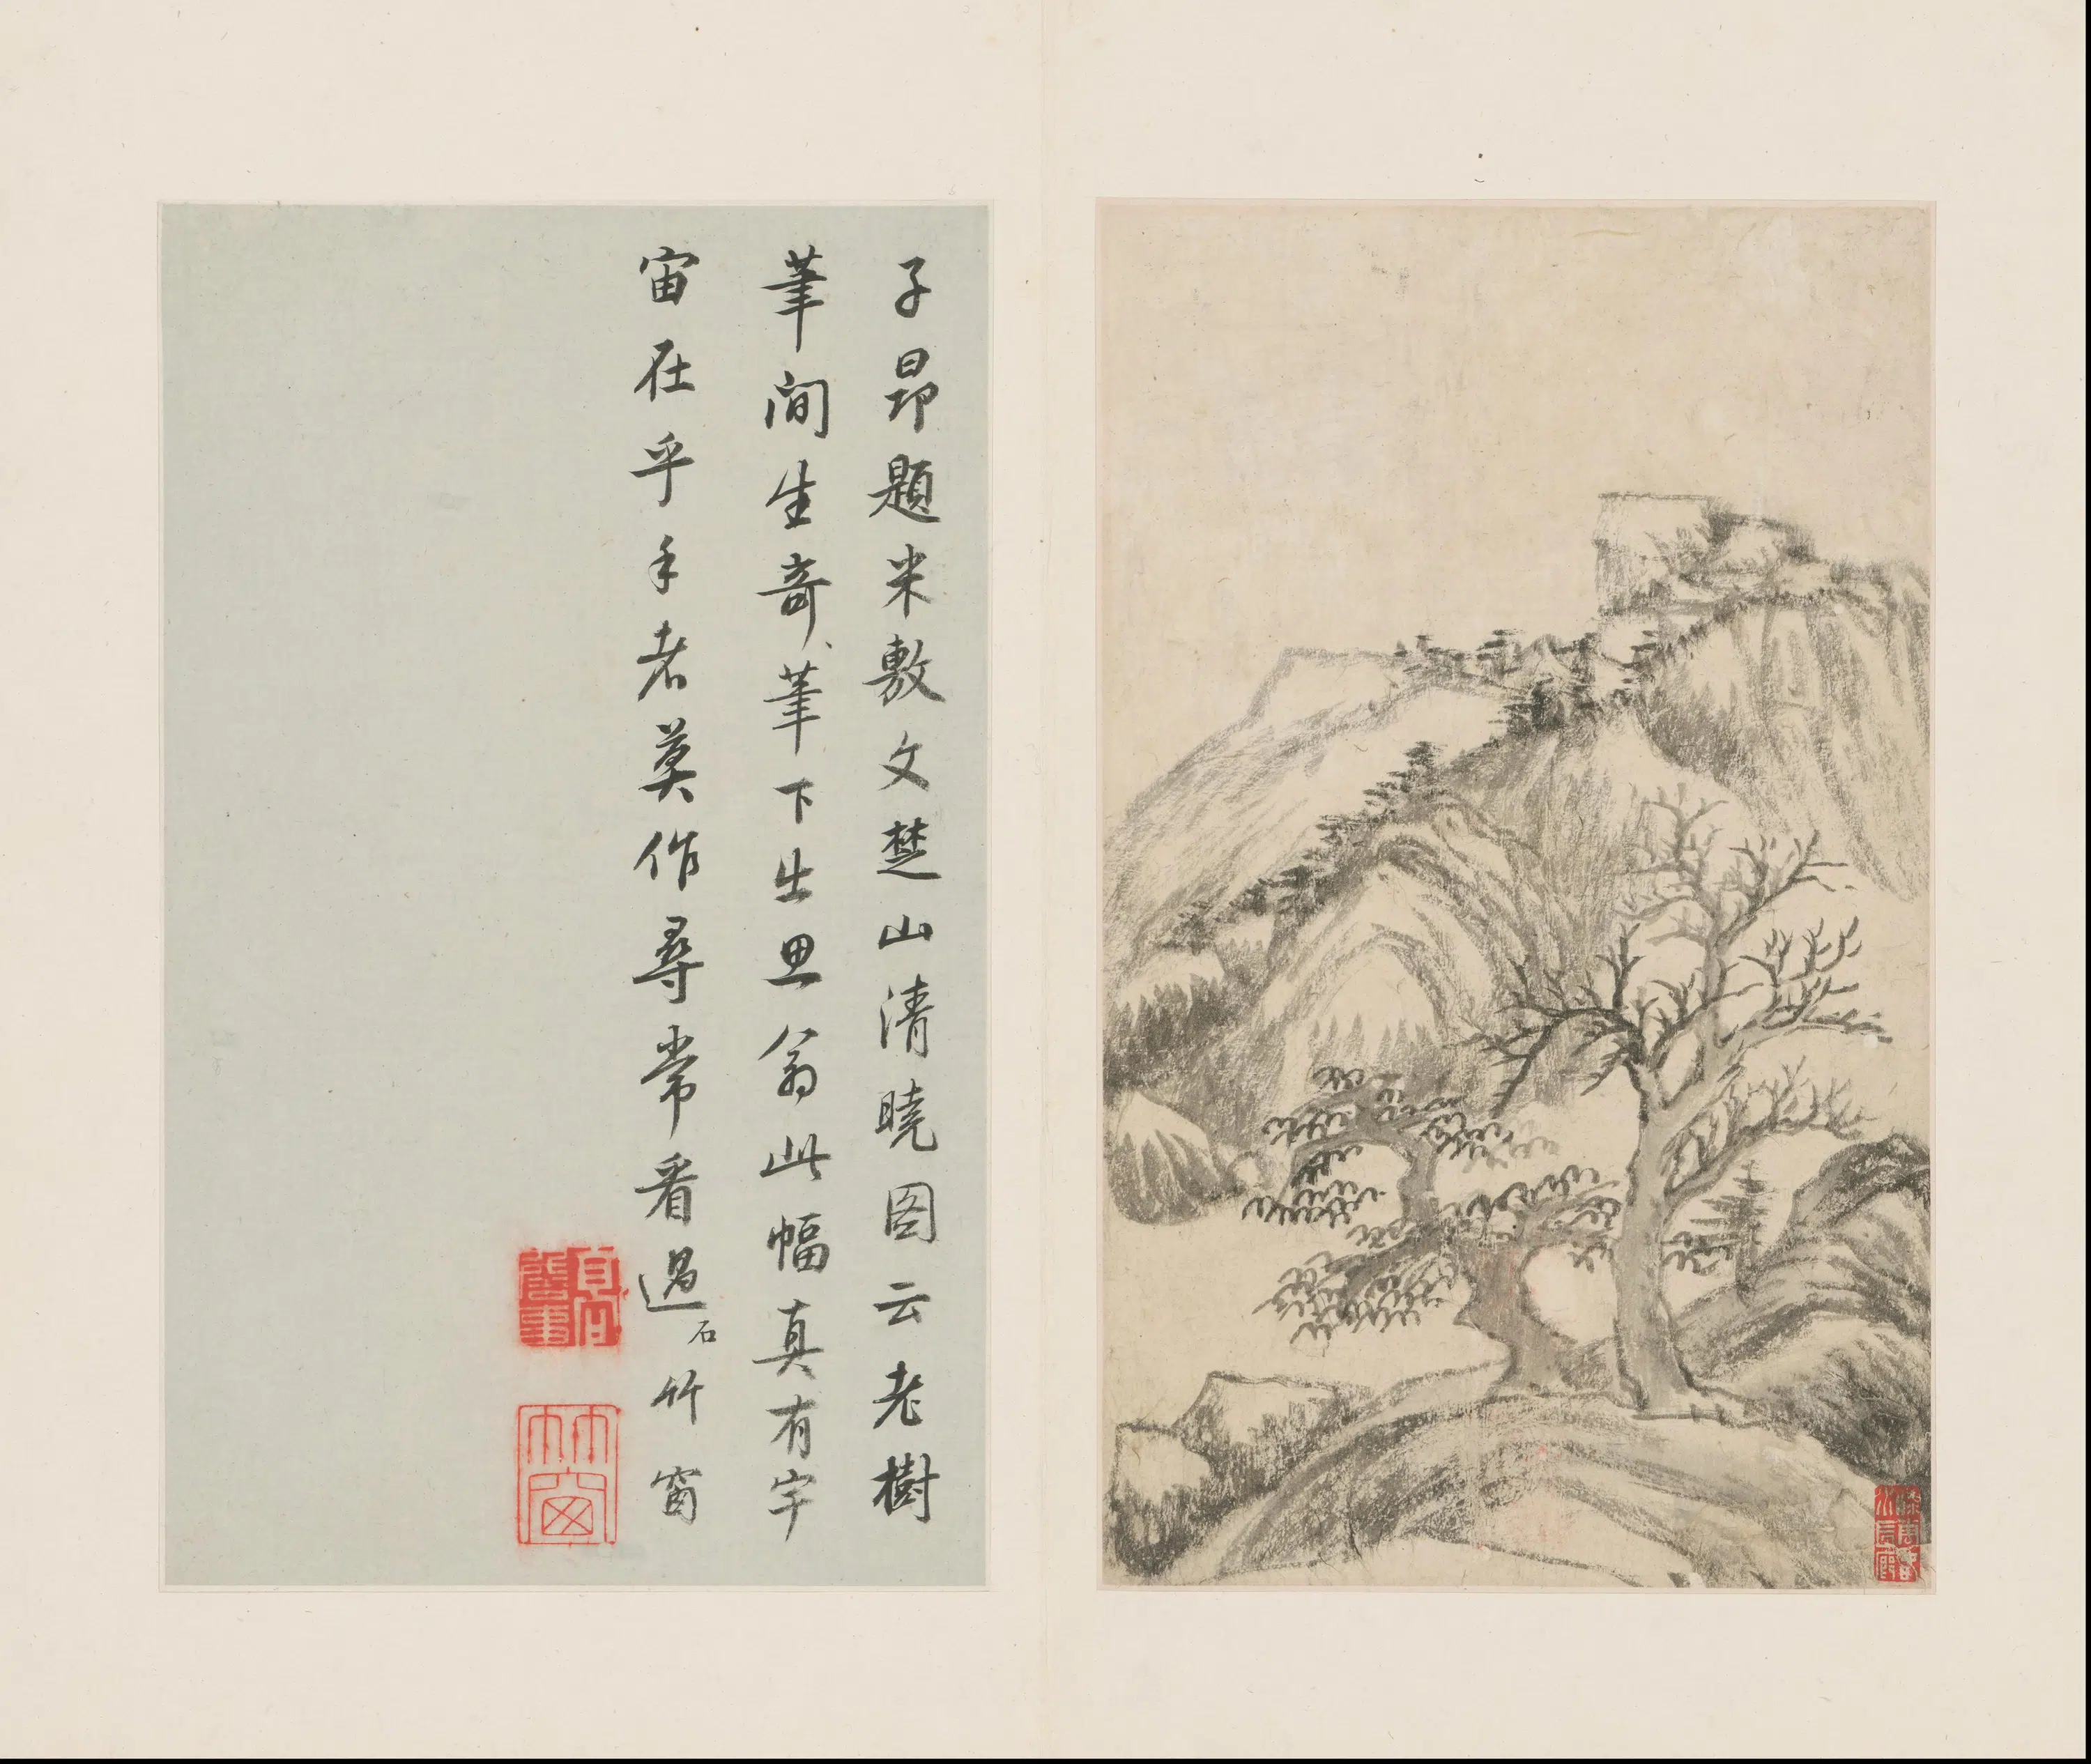 子昂題米敷文楚山清曉图云老樹
筆間生奇、筆下出思翁此幅真有宇
宙在乎手者莫作尋常看過石竹窗
高詹事
竹窗